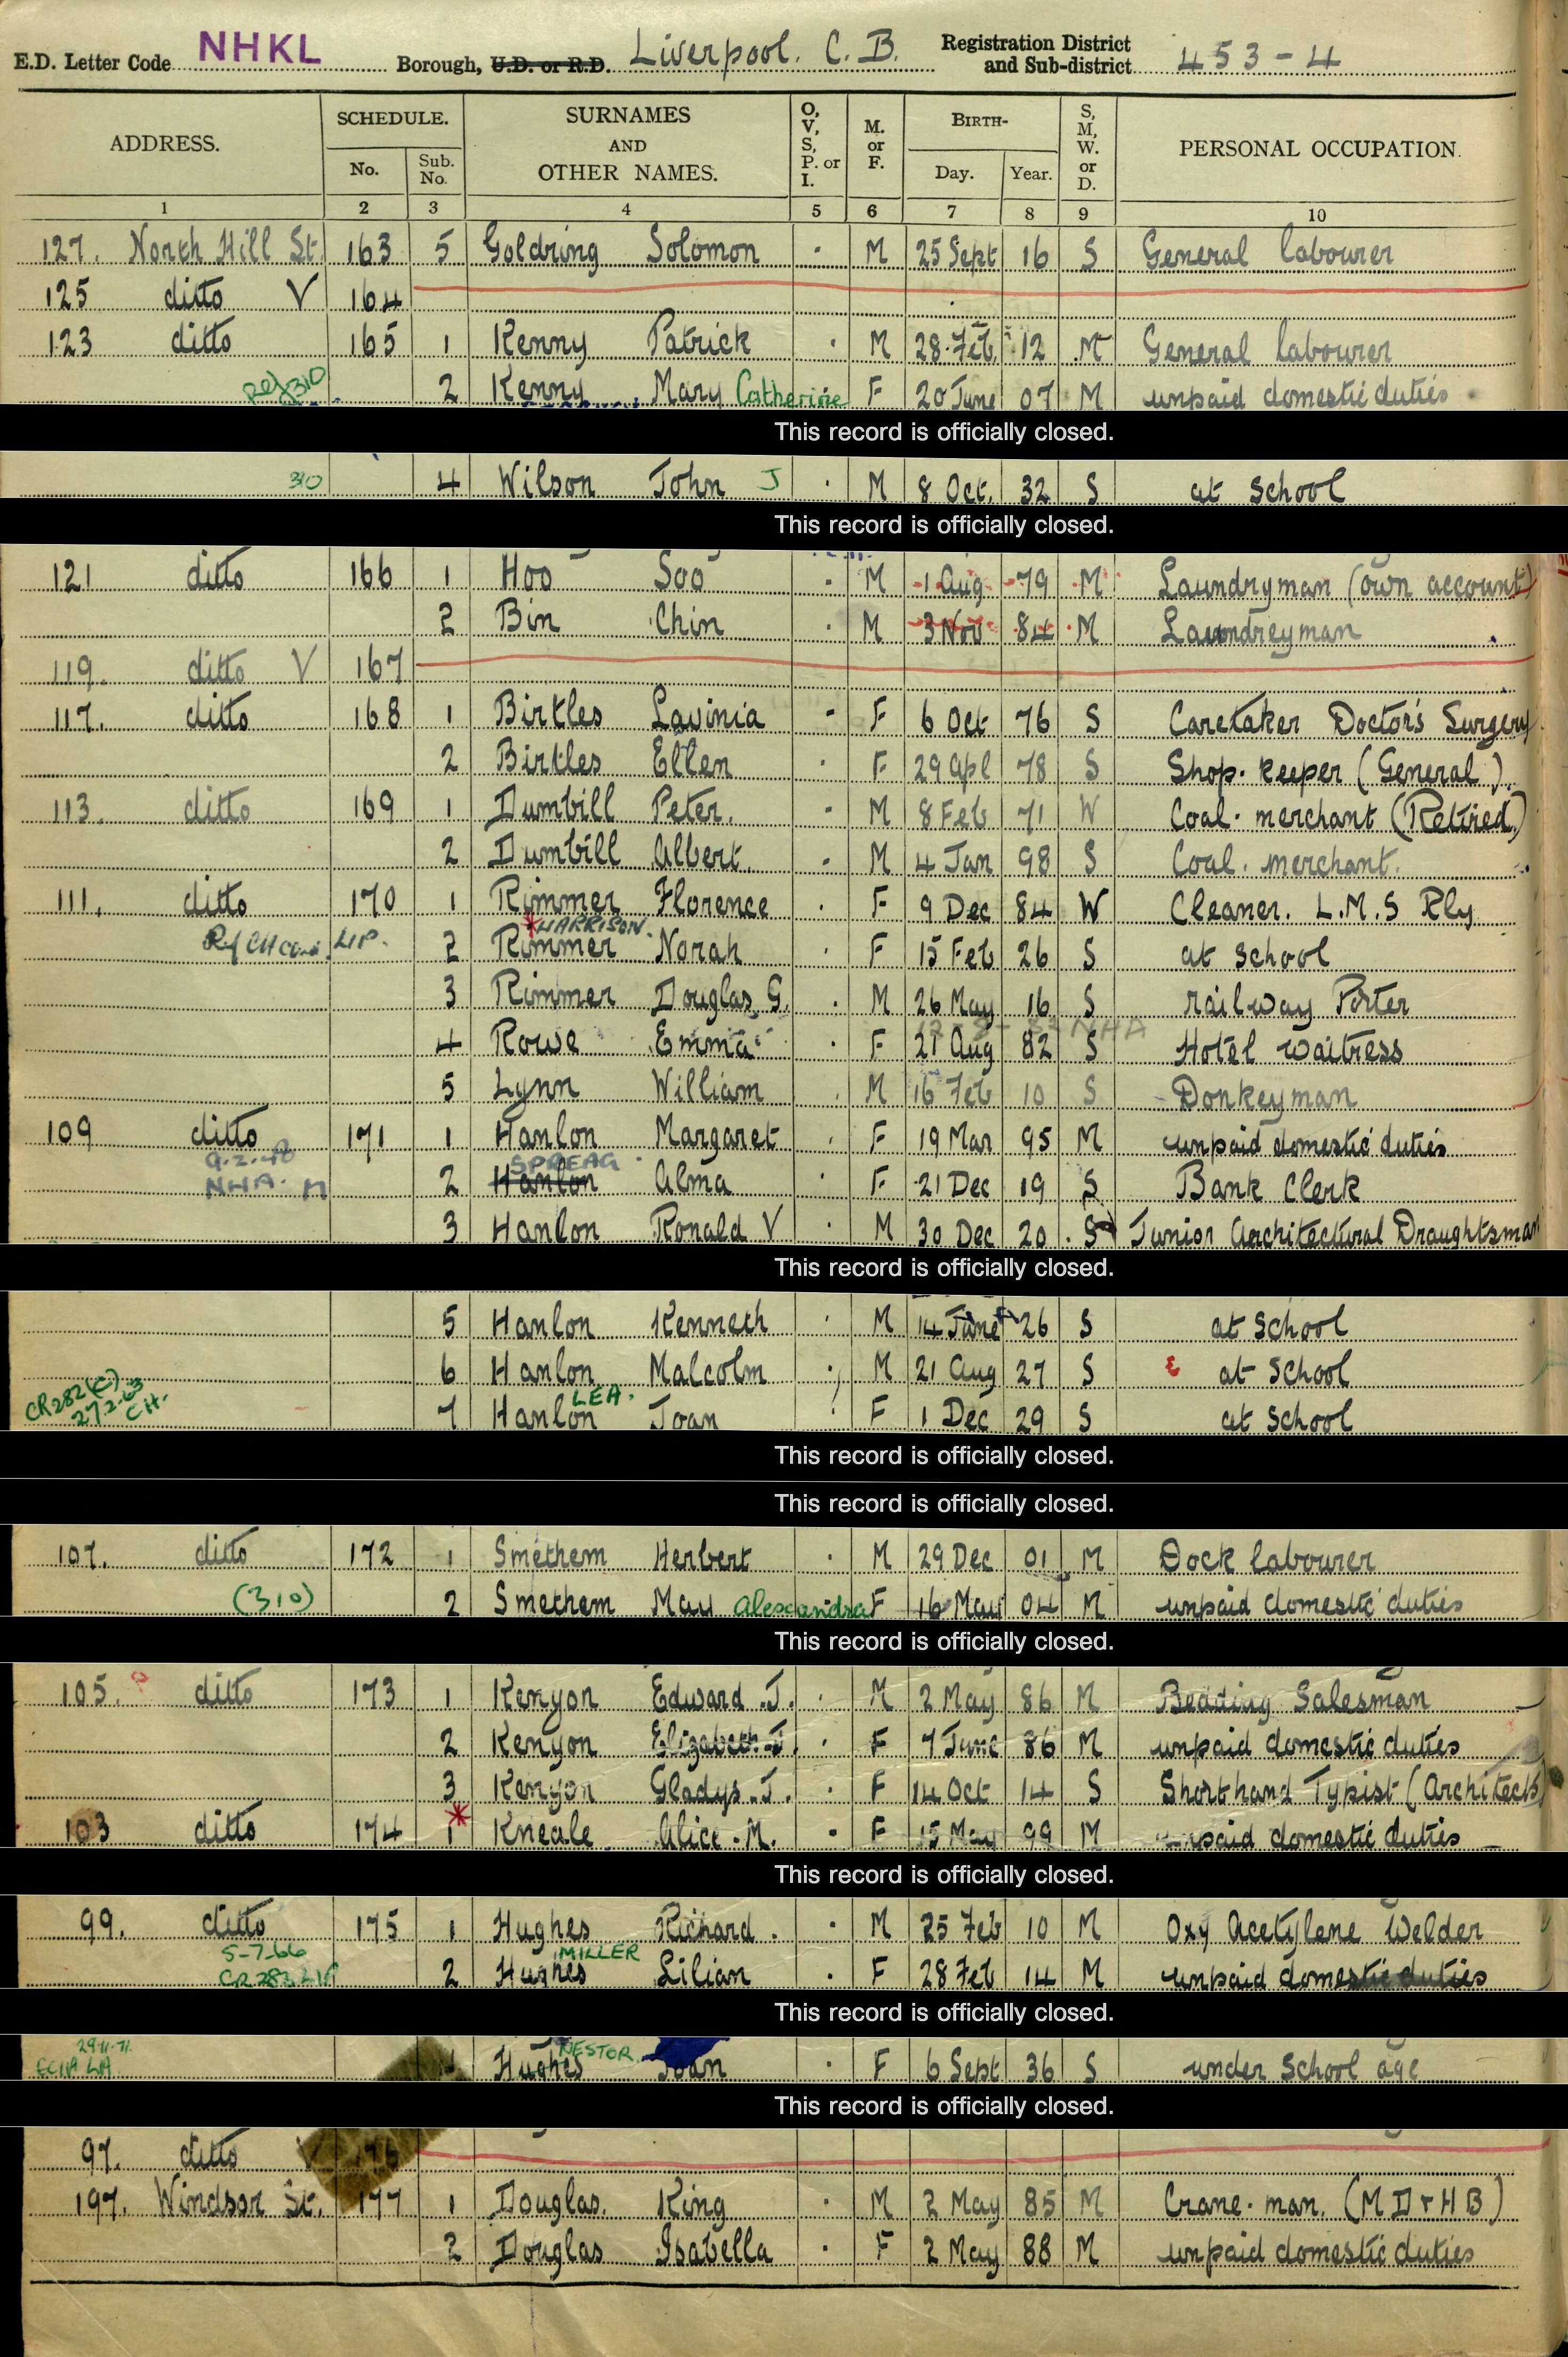 E.D. Letter Code NHKL Borough, U.D. or R.D. Liverpool. C. B. Registration District and Sub-district 453-4
ADDRESS. SCHEDULE. No. Sub. No. SURNAMES AND OTHER NAMES. O, V, S, P. or I. M. or F. BIRTH- Day. Year. S, M, W. or D. PERSONAL OCCUPATION.
1 2 3 4 5 6 7 8 9 10
127. North Hill St. 163 5 Goldring Solomon M 25 Sept 16 S General labourer
125 ditto V 164
123 ditto 165 1 Kenny Patrick M 28 Feb 12 M General labourer
Ref 310 2 Kenny Mary Catherine F 20 June 07 M unpaid domestic duties
This record is officially closed.
310 4 Wilson John J M 8 Oct. 32 S at School
This record is officially closed.
121 ditto 166 1 Hoo Soo M 1 Aug 79 M Laundryman (own account)
2 Bin Chin M 3 Nov 84 M Laundreyman
119. ditto V 167
117. ditto 168 1 Birtles Lavinia F 6 Oct 76 S Caretaker Doctor's Surgery
2 Birtles Ellen F 29 Apl 78 S Shop-keeper (General)
113. ditto 169 1 Dumbill Peter. M 8 Feb 71 W Coal-merchant (Retired)
2 Dumbill Albert. M 4 Jan 98 S Coal. merchant.
111. ditto 170 1 Rimmer Florence F 9 Dec 84 W Cleaner. L.M.S Rly
HARRISON.
LIP. 2 Rimmer Norah F 15 Feb 26 S at School
3 Rimmer Douglas G. M 26 May 16 S railway Porter
NHA
4 Rowe Emma F 21 Aug 82 S Hotel waitress
5 Lynn William M 16 Feb 10 S Donkeyman
109 ditto 171 1 Hanlon Margaret F 19 Mar 95 M unpaid domestic duties
9.2.48 SPREAG
NHA. M 2 Hanlon Alma F 21 Dec 19 S Bank Clerk
3 Hanlon Ronald V M 30 Dec 20 S Junior Architectural Draughtsman
This record is officially closed.
5 Hanlon Kenneth M 14 June 26 S at School
6 Hanlon Malcolm M 21 Aug 27 S at School
CR282(C) LEA.
27.2.63 CH. 7 Hanlon Joan F 1 Dec 29 S at School
This record is officially closed.
This record is officially closed.
107. ditto 172 1 Smethem Herbert M 29 Dec 01 M Dock labourer
(310) 2 Smethem May Alexandra F 16 May 04 M unpaid domestic duties
This record is officially closed.
105. ditto 173 1 Kenyon Edward .J. M 2 May 86 M Bedding Salesman
2 Kenyon Elizabeth.J. F 7 June 86 M unpaid domestic duties
3 Kenyon Gladys.J. F 14 Oct 14 S Shorthand Typist (Architects)
103 ditto 174 1 Kneale Alice.M. F 15 May 99 M unpaid domestic duties
This record is officially closed.
99. ditto 175 1 Hughes Richard. M 25 Feb 10 M Oxy Acetylene Welder
5-7-66 MILLER
CR 283 LIP 2 Hughes Lilian F 28 Feb 14 M unpaid domestic duties
This record is officially closed.
29.11.71. NESTOR.
Hughes Joan F 6 Sept 36 S under School age
This record is officially closed.
97. ditto V 176
197. Windsor St. 177 1 Douglas. King M 2 May 85 M Crane-man. (M D & H B)
2 Douglas Isabella F 2 May 88 M unpaid domestic duties